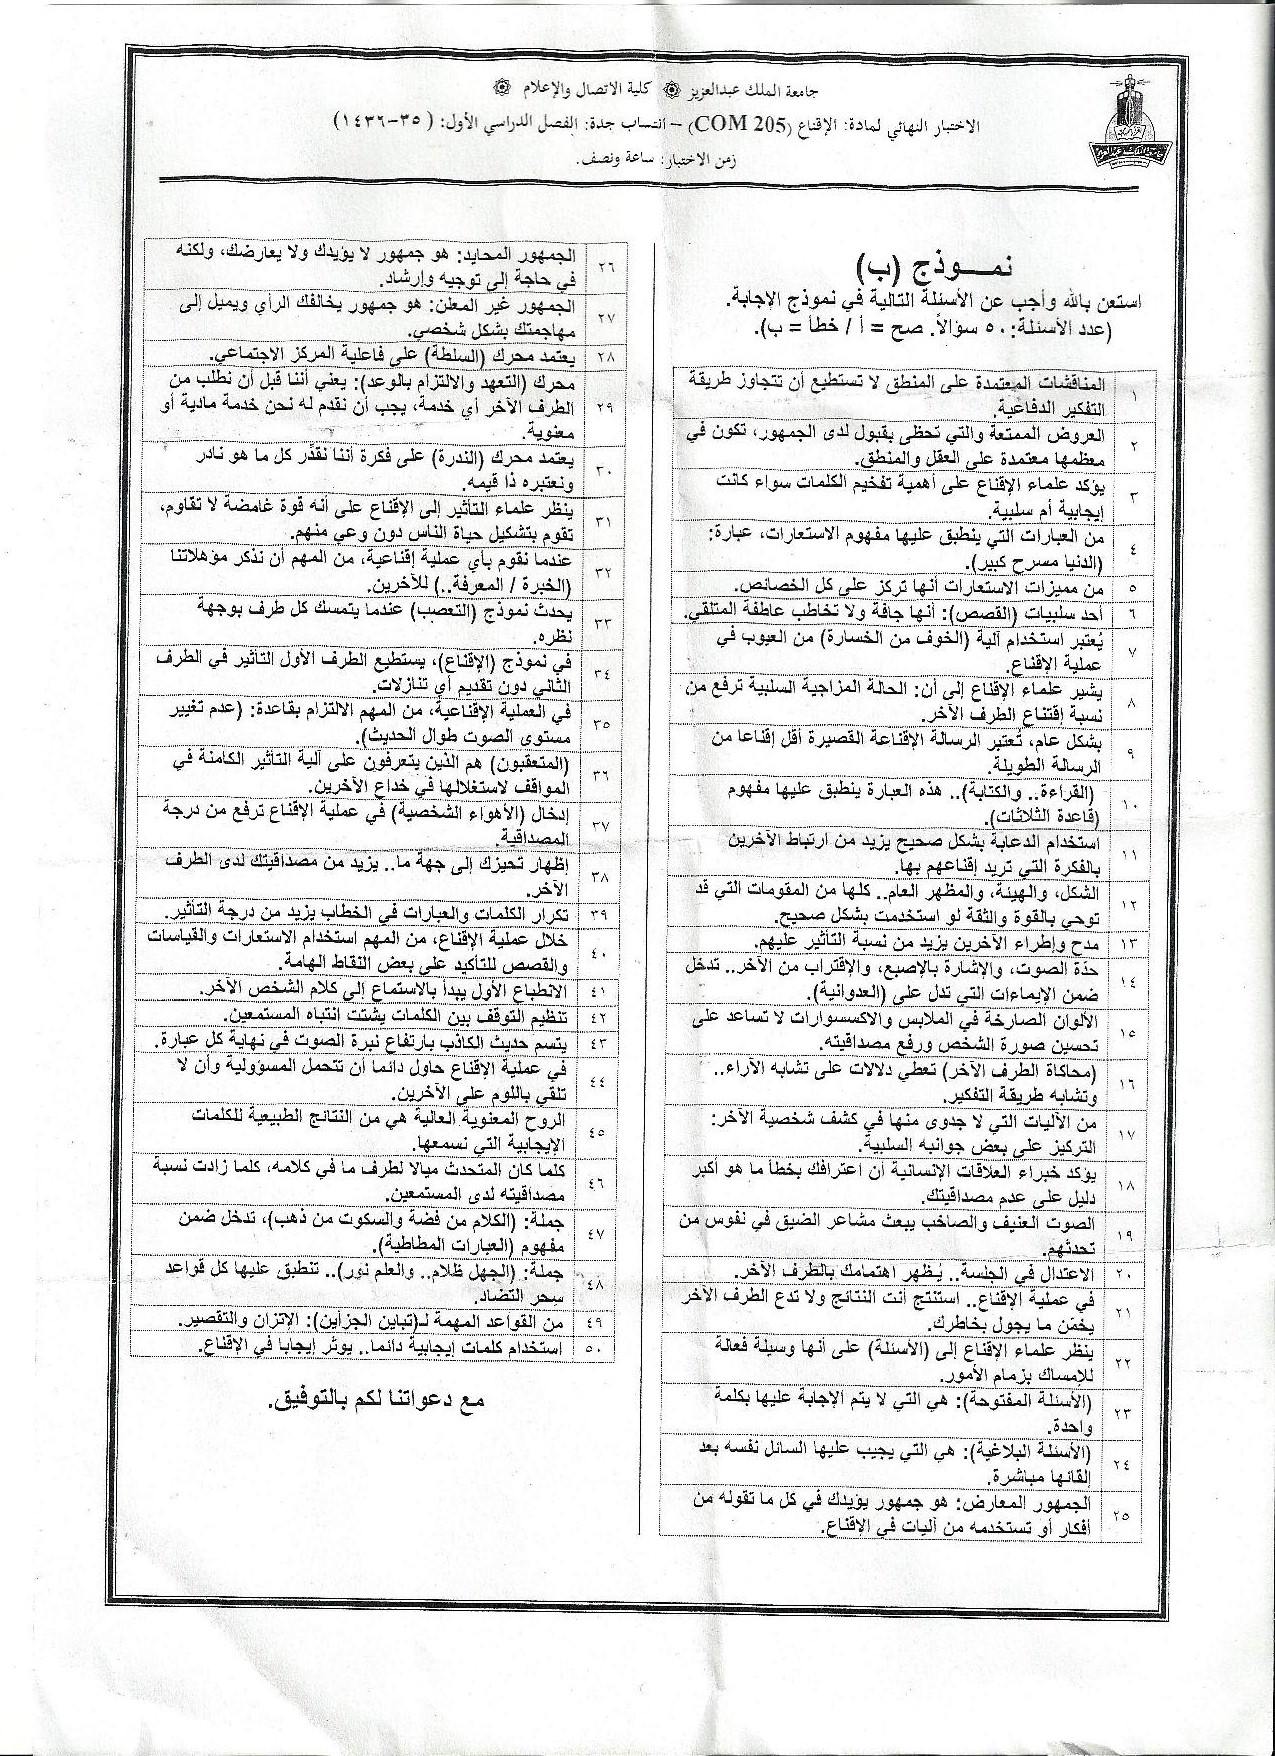 جامعة الملك عبدالعزيز ۞ كلية الاتصال والإعلام ۞
الاختبار النهائي لمادة: الإقناع (COM 205) – انتساب جدة: الفصل الدراسي الأول: (٣٥-١٤٣٦)
زمن الاختبار: ساعة ونصف.
نمـــوذج (ب)
استعن بالله وأجب عن الأسئلة التالية في نموذج الإجابة.
(عدد الأسئلة: ٥٠ سؤالاً. صح = أ / خطأ = ب).
١ المناقشات المعتمدة على المنطق لا تستطيع أن تتجاوز طريقة
التفكير الدفاعية.
٢ العروض الممتعة والتي تحظى بقبول لدى الجمهور، تكون في
معظمها معتمدة على العقل والمنطق.
٣ يؤكد علماء الإقناع على أهمية تفخيم الكلمات سواء كانت
إيجابية أم سلبية.
٤ من العبارات التي ينطبق عليها مفهوم الاستعارات، عبارة:
(الدنيا مسرح كبير).
٥ من مميزات الاستعارات أنها تركز على كل الخصائص.
٦ أحد سلبيات (القصص): أنها جافة ولا تخاطب عاطفة المتلقي.
٧ يُعتبر استخدام آلية (الخوف من الخسارة) من العيوب في
عملية الإقناع.
٨ يشير علماء الإقناع إلى أن: الحالة المزاجية السلبية ترفع من
نسبة إقتناع الطرف الآخر.
٩ بشكل عام، تُعتبر الرسالة الإقناعة القصيرة أقل إقناعا من
الرسالة الطويلة.
١٠ (القراءة.. والكتابة).. هذه العبارة ينطبق عليها مفهوم
(قاعدة الثلاثات).
١١ استخدام الدعابة بشكل صحيح يزيد من ارتباط الآخرين
بالفكرة التي تريد إقناعهم بها.
١٢ الشكل، والهيئة، والمظهر العام.. كلها من المقومات التي قد
توحي بالقوة والثقة لو استخدمت بشكل صحيح.
١٣ مدح وإطراء الآخرين يزيد من نسبة التأثير عليهم.
١٤ حدّة الصوت، والإشارة بالإصبع، والإقتراب من الآخر.. تدخل
ضمن الإيماءات التي تدل على (العدوانية).
١٥ الألوان الصارخة في الملابس والاكسسوارات لا تساعد على
تحسين صورة الشخص ورفع مصداقيته.
١٦ (محاكاة الطرف الآخر) تعطي دلالات على تشابه الآراء..
وتشابه طريقة التفكير.
١٧ من الآليات التي لا جدوى منها في كشف شخصية الآخر:
التركيز على بعض جوانبه السلبية.
١٨ يؤكد خبراء العلاقات الإنسانية أن اعترافك بخطأ ما هو أكبر
دليل على عدم مصداقيتك.
١٩ الصوت العنيف والصاخب يبعث مشاعر الضيق في نفوس من
تحدثهم.
٢٠ الاعتدال في الجلسة.. يُظهر اهتمامك بالطرف الآخر.
٢١ في عملية الإقناع.. استنتج أنت النتائج ولا تدع الطرف الآخر
يخمّن ما يجول بخاطرك.
٢٢ ينظر علماء الإقناع إلى (الأسئلة) على أنها وسيلة فعالة
للإمساك بزمام الأمور.
٢٣ (الأسئلة المفتوحة): هي التي لا يتم الإجابة عليها بكلمة
واحدة.
٢٤ (الأسئلة البلاغية): هي التي يجيب عليها السائل نفسه بعد
إلقائها مباشرة.
٢٥ الجمهور المعارض: هو جمهور يؤيدك في كل ما تقوله من
أفكار أو تستخدمه من آليات في الإقناع.
٢٦ الجمهور المحايد: هو جمهور لا يؤيدك ولا يعارضك، ولكنه
في حاجة إلى توجيه وإرشاد.
٢٧ الجمهور غير المعلن: هو جمهور يخالفك الرأي ويميل إلى
مهاجمتك بشكل شخصي.
٢٨ يعتمد محرك (السلطة) على فاعلية المركز الاجتماعي.
٢٩ محرك (التعهد والالتزام بالوعد): يعني أننا قبل أن نطلب من
الطرف الآخر أي خدمة، يجب أن نقدم له نحن خدمة مادية أو
معنوية.
٣٠ يعتمد محرك (الندرة) على فكرة أننا نقدّر كل ما هو نادر
ونعتبره ذا قيمه.
٣١ ينظر علماء التأثير إلى الإقناع على أنه قوة غامضة لا تقاوم،
تقوم بتشكيل حياة الناس دون وعي منهم.
٣٢ عندما نقوم بأي عملية إقناعية، من المهم أن نذكر مؤهلاتنا
(الخبرة / المعرفة..) للآخرين.
٣٣ يحدث نموذج (التعصب) عندما يتمسك كل طرف بوجهة
نظره.
٣٤ في نموذج (الإقناع)، يستطيع الطرف الأول التأثير في الطرف
الثاني دون تقديم أي تنازلات.
٣٥ في العملية الإقناعية، من المهم الالتزام بقاعدة: (عدم تغيير
مستوى الصوت طوال الحديث).
٣٦ (المتعقبون) هم الذين يتعرفون على آلية التأثير الكامنة في
المواقف لاستغلالها في خداع الآخرين.
٣٧ إدخال (الأهواء الشخصية) في عملية الإقناع ترفع من درجة
المصداقية.
٣٨ إظهار تحيزك إلى جهة ما.. يزيد من مصداقيتك لدى الطرف
الآخر.
٣٩ تكرار الكلمات والعبارات في الخطاب يزيد من درجة التأثير.
٤٠ خلال عملية الإقناع، من المهم استخدام الاستعارات والقياسات
والقصص للتأكيد على بعض النقاط الهامة.
٤١ الانطباع الأول يبدأ بالاستماع إلى كلام الشخص الآخر.
٤٢ تنظيم التوقف بين الكلمات يشتت انتباه المستمعين.
٤٣ يتسم حديث الكاذب بارتفاع نبرة الصوت في نهاية كل عبارة.
٤٤ في عملية الإقناع حاول دائما أن تتحمل المسؤولية وأن لا
تلقي باللوم على الآخرين.
٤٥ الروح المعنوية العالية هي من النتائج الطبيعية للكلمات
الإيجابية التي نسمعها.
٤٦ كلما كان المتحدث ميالا لطرف ما في كلامه، كلما زادت نسبة
مصداقيته لدى المستمعين.
٤٧ جملة: (الكلام من فضة والسكوت من ذهب)، تدخل ضمن
مفهوم (العبارات المطاطية).
٤٨ جملة: (الجهل ظلام.. والعلم نور).. تنطبق عليها كل قواعد
سحر التضاد.
٤٩ من القواعد المهمة لـ(تباين الجزأين): الإتزان والتقصير.
٥٠ استخدام كلمات إيجابية دائما.. يوثر إيجابا في الإقناع.
مع دعواتنا لكم بالتوفيق.